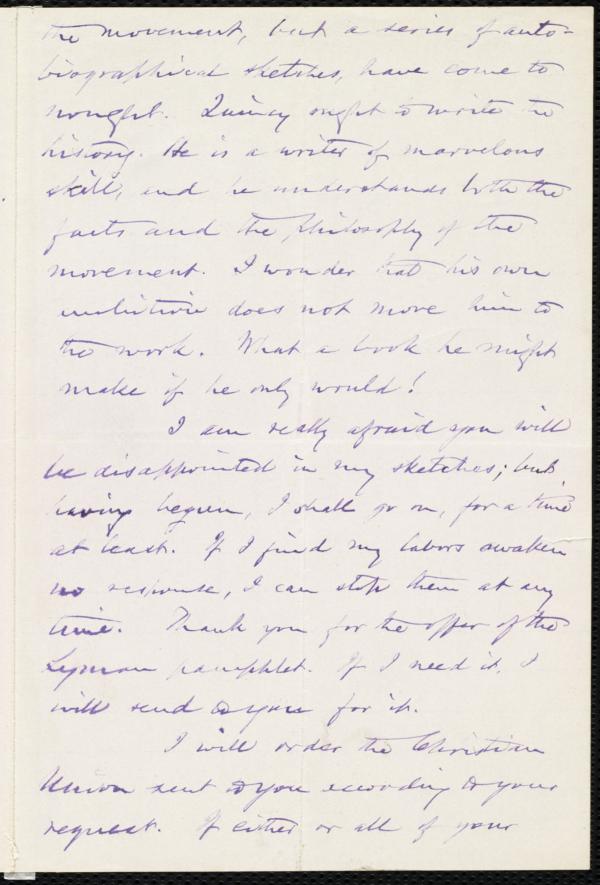 the movement, but a series of auto-
biographical sketches, have come to
nought. Quincy ought to write the
history. He is a writer of marvelous
skill, and he understands both the
facts and the philosophy of the
movement. I wonder that his own
ambition does not move him to
the work. What a book he might
make if he only would!
I am really afraid you will
be disappointed in my sketches; but
having begun, I shall go on, for a time
at least. If I find my labors awaken
no response, I can stop them at any
time. Thank you for the offer of the
Lyman pamphlet. If I need it, I
will send to you for it.
I will order the Christian
Union sent to you according to your
request. If either or all of your